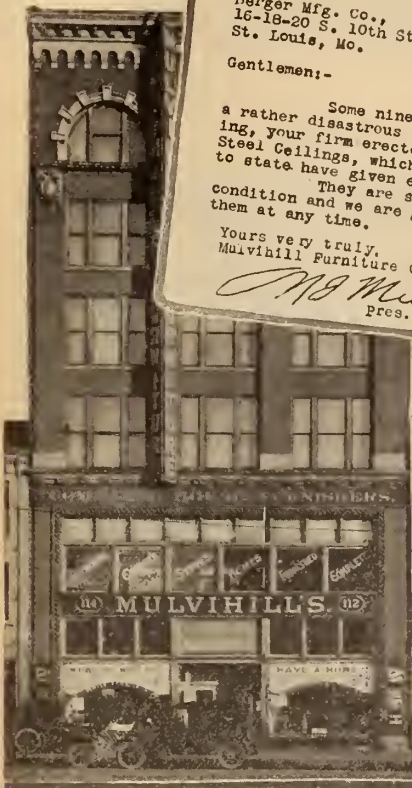 Berger Mfg. Co.,
16-18-20 S. 10th St
St. Louis, Mo.
Gentlemen:-
Some nine
a rather disastrous
ing, your firm erecte
Steel Ceilings, which
to state have given e
They are s
condition and we are
them at any time.
Yours very truly,
Mulvihill Furniture
Pres.
FURNISHERS.
HOMES FURNISHED COMPLETE
114 MULVIHILL'S. 112
HAVE A HOME